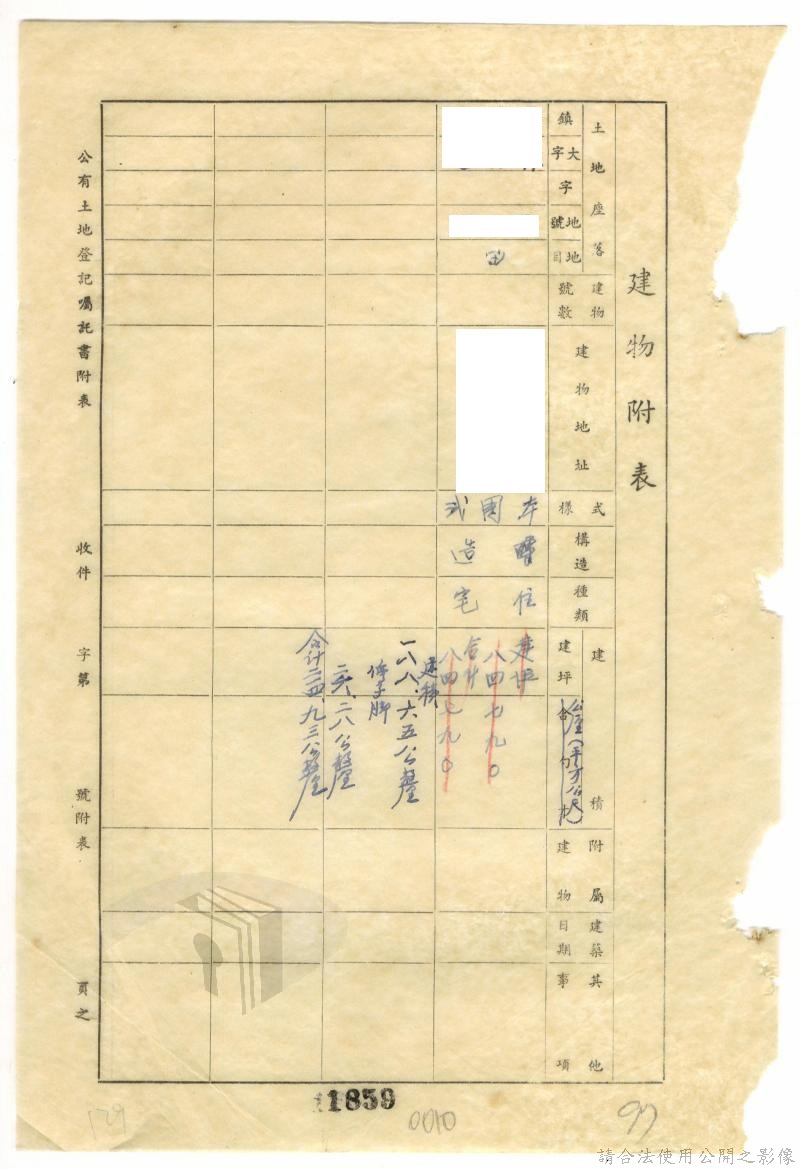 建物附表
土地座落
鎮
大字
字
地號
地目
田
建物號數
建物地址
式樣
本國式
構造
造
種類
住宅
建積
建坪
公厘(平方公尺)
建坪
八四七九〇
合計
八四七九〇
建積
一八八.六五公厘
亭子脚
二六.二八公厘
合計二一四.九三公厘
附屬建物
建築日期
其他事項
公有土地登記囑託書附表
收件
字第
號附表
頁之
1859
0010
97
129
請合法使用公開之影像